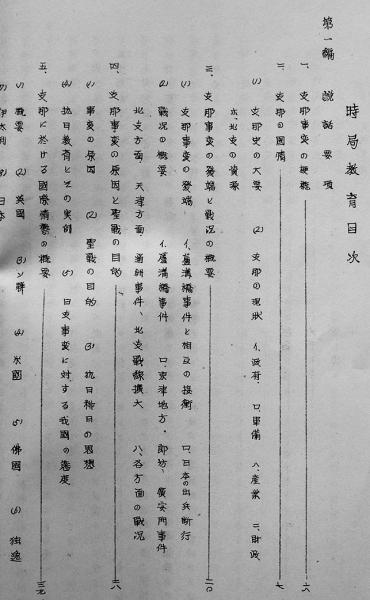 時局教育目次
第一編 説話要項
一、支那事変の現態 一六
二、支那の国情 七
(1) 支那史の大要 (2) 支那の現状 イ、政府、 ロ、軍備 ハ、産業 ニ、財政
ホ、北支の資源
三、支那事変の発端と戦況の概要 二〇
(1) 支那事変の発端 イ、蘆溝橋事件と相互の接衝 ロ、日本の出兵断行
(2) 戦況の概要 イ、蘆溝橋事件 ロ、京津地方、郎坊、廣安門事件
北支方面 天津方面 通州事件、北支戦線擴大 ハ、各方面の戦況
四、支那事変の原因と聖戦の目的 二八
(1) 事変の原因 (2) 聖戦の目的 (3) 抗日排日の思想
(4) 抗日教育とその実例 (5) 日支事変に対する我國の態度
五、支那に於ける國際情勢の概要 三七
(1) 概要 (2) 英國 (3) ソ聯 (4) 米國 (5) 佛國 (6) 独逸
(7) 伊太利 (8) 日本